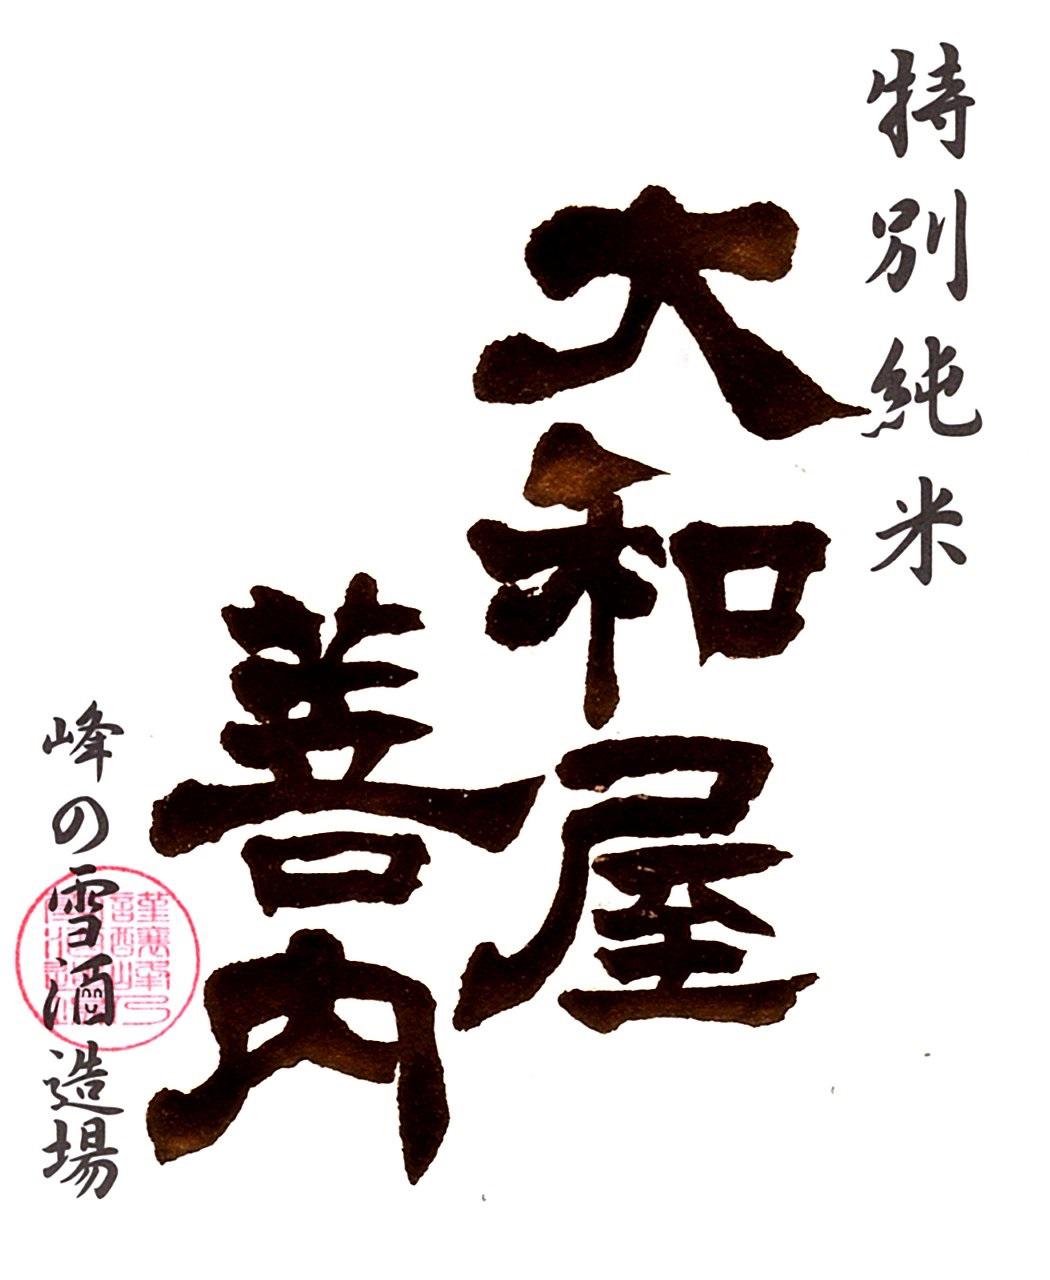 特別純米
大和屋
善内
峰の雪酒造場